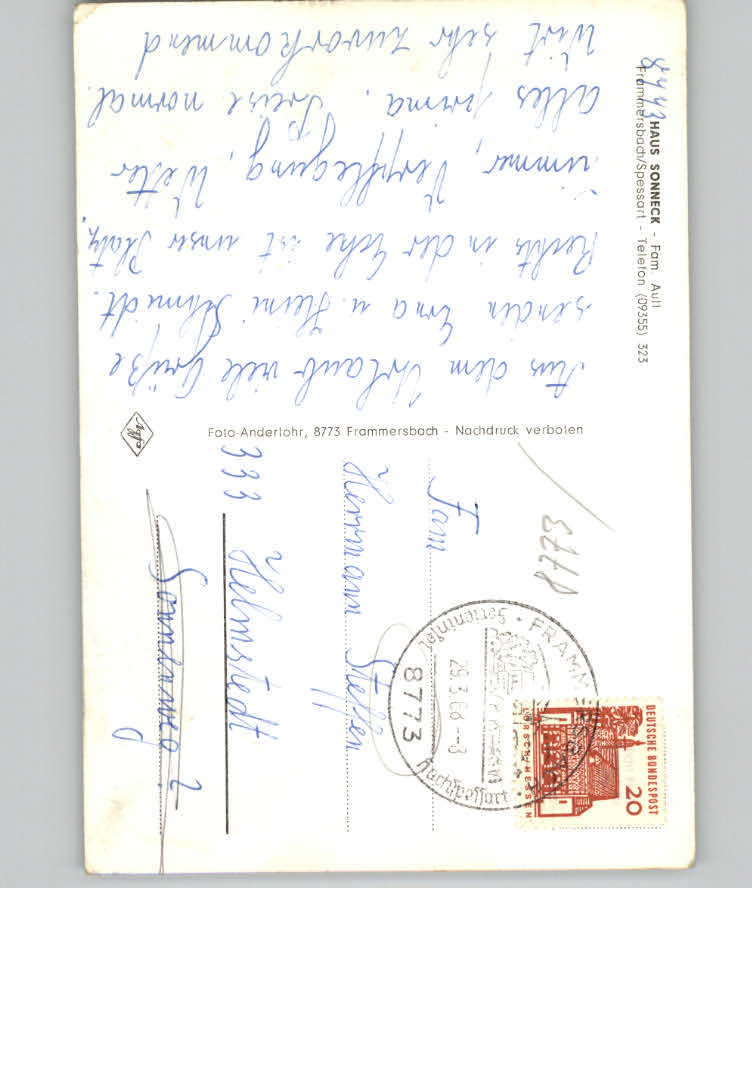 HAUS SONNECK - Fam. Aull
Frammersbach/Spessart - Telefon (09355) 323
Aus dem Urlaub viele Grüße
senden Erna u. Heini Schmidt.
Rechts in der Ecke ist unser Platz,
Zimmer, Verpflegung, Wetter
alles prima. Preise normal.
Wirt sehr zuvorkommend
Foto-Anderlohr, 8773 Frammersbach - Nachdruck verboten
Agfa
8773
Fam
Hermann Steffen
333 Helmstedt
FRAMMERSBACH
Ferieninsel
29.3.66-8
8773
Hochspessart
DEUTSCHE BUNDESPOST
20
LORSCH/HESSEN